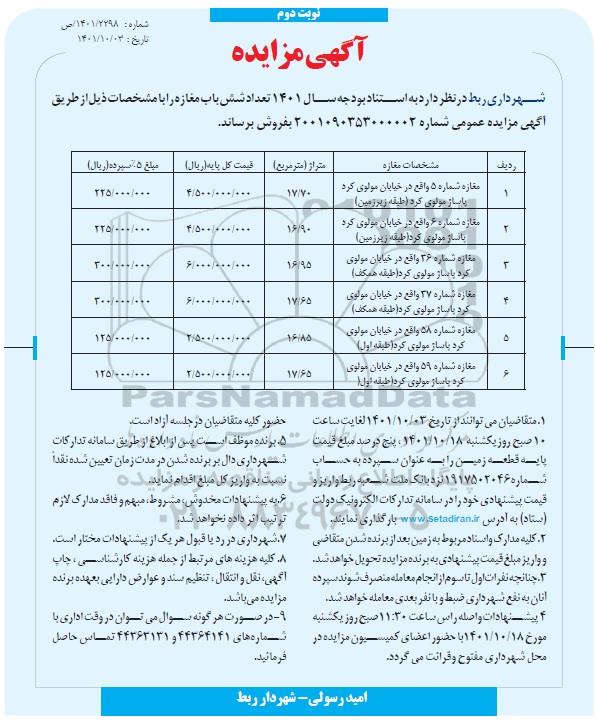 نوبت دوم
شماره: ۱۴۰۱/۲۲۹۸/ص
تاریخ: ۱۴۰۱/۱۰/۰۳
آگهی مزایده
شهرداری ربط در نظر دارد به استناد بودجه سال ۱۴۰۱ تعداد شش باب مغازه را با مشخصات ذیل از طریق
آگهی مزایده عمومی شماره ۲۰۰۱۰۹۰۳۵۳۰۰۰۰۰۲ بفروش برساند.
ردیف مشخصات مغازه متراژ (مترمربع) قیمت کل پایه(ریال) مبلغ ۵٪سپرده(ریال)
۱ مغازه شماره ۵ واقع در خیابان مولوی کرد پاساژ مولوی کرد (طبقه زیرزمین) ۱۷/۷۰ ۴/۵۰۰/۰۰۰/۰۰۰ ۲۲۵/۰۰۰/۰۰۰
۲ مغازه شماره ۶ واقع در خیابان مولوی کرد پاساژ مولوی کرد(طبقه زیرزمین) ۱۶/۹۰ ۴/۵۰۰/۰۰۰/۰۰۰ ۲۲۵/۰۰۰/۰۰۰
۳ مغازه شماره ۳۶ واقع در خیابان مولوی کرد پاساژ مولوی کرد(طبقه همکف) ۱۶/۹۵ ۶/۰۰۰/۰۰۰/۰۰۰ ۳۰۰/۰۰۰/۰۰۰
۴ مغازه شماره ۳۷ واقع در خیابان مولوی کرد پاساژ مولوی کرد(طبقه همکف) ۱۷/۶۵ ۶/۰۰۰/۰۰۰/۰۰۰ ۳۰۰/۰۰۰/۰۰۰
۵ مغازه شماره ۵۸ واقع در خیابان مولوی کرد پاساژ مولوی کرد(طبقه اول) ۱۶/۸۵ ۲/۵۰۰/۰۰۰/۰۰۰ ۱۲۵/۰۰۰/۰۰۰
۶ مغازه شماره ۵۹ واقع در خیابان مولوی کرد پاساژ مولوی کرد(طبقه اول) ۱۷/۶۵ ۲/۵۰۰/۰۰۰/۰۰۰ ۱۲۵/۰۰۰/۰۰۰
ParsNamadData
۱. متقاضیان می توانند از تاریخ ۱۴۰۱/۱۰/۰۳ لغایت ساعت
۱۰ صبح روز یکشنبه ۱۴۰۱/۱۰/۱۸ ، پنج درصد مبلغ قیمت
پایه قطعه زمین را به عنوان سپرده به حساب
شماره ۱۹۱۷۵۰۲۰۴۶ نزد بانک ملت شعبه ربط واریز و
قیمت پیشنهادی خود را در سامانه تدارکات الکترونیک دولت
(ستاد) به آدرس www.setadiran.ir بارگذاری نمایند.
۲. کلیه مدارک و اسناد مربوط به زمین بعد از برنده شدن متقاضی
و واریز مبلغ قیمت پیشنهادی به برنده مزایده تحویل خواهد شد.
۳. چنانچه نفرات اول تا سوم از انجام معامله منصرف شوند سپرده
آنان به نفع شهرداری ضبط و با نفر بعدی معامله خواهد شد.
۴ پیشنهادات واصله راس ساعت ۱۱:۳۰ صبح روز یکشنبه
مورخ ۱۴۰۱/۱۰/۱۸ با حضور اعضای کمیسیون مزایده در
محل شهرداری مفتوح و قرائت می گردد.
حضور کلیه متقاضیان در جلسه آزاد است.
۵. برنده موظف است پس از ابلاغ از طریق سامانه تدارکات
شهرداری دال بر برنده شدن در مدت زمان تعیین شده نقداً
نسبت به واریز کل مبلغ اقدام نماید.
۶. به پیشنهادات مخدوش، مشروط، مبهم و فاقد مدارک لازم
ترتیب اثر داده نخواهد شد.
۷. شهرداری در رد یا قبول هر یک از پیشنهادات مختار است.
۸. کلیه هزینه های مرتبط از جمله هزینه کارشناسی ، چاپ
آگهی، نقل و انتقال ، تنظیم سند و عوارض دارایی بعهده برنده
مزایده می باشد.
۹- در صورت هر گونه سوال می توان در وقت اداری با
شماره‌های ۴۴۳۶۴۱۴۱ و ۴۴۳۶۳۱۳۱ تماس حاصل
فرمائید.
امید رسولی – شهردار ربط